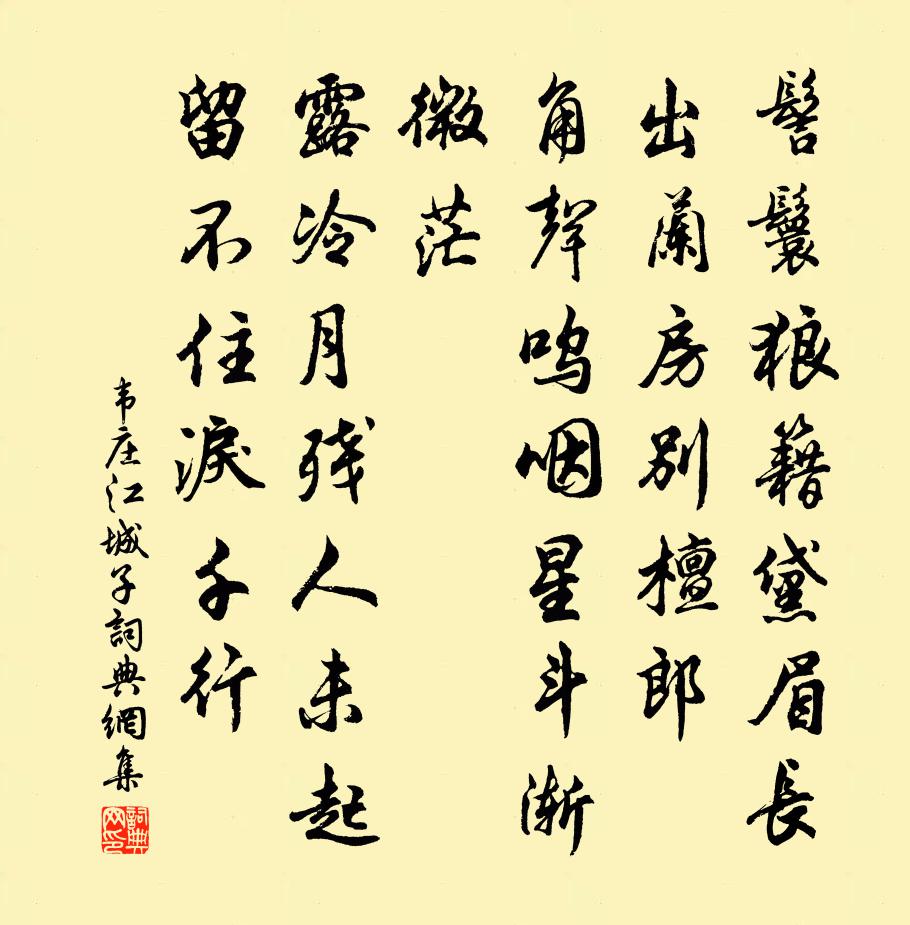 髻鬟狼籍黛眉長
出蘭房別檀郎
角聲嗚咽星斗漸
微茫
露冷月殘人未起
留不住淚千行
韦庄江城子詞典網集
詞典网印